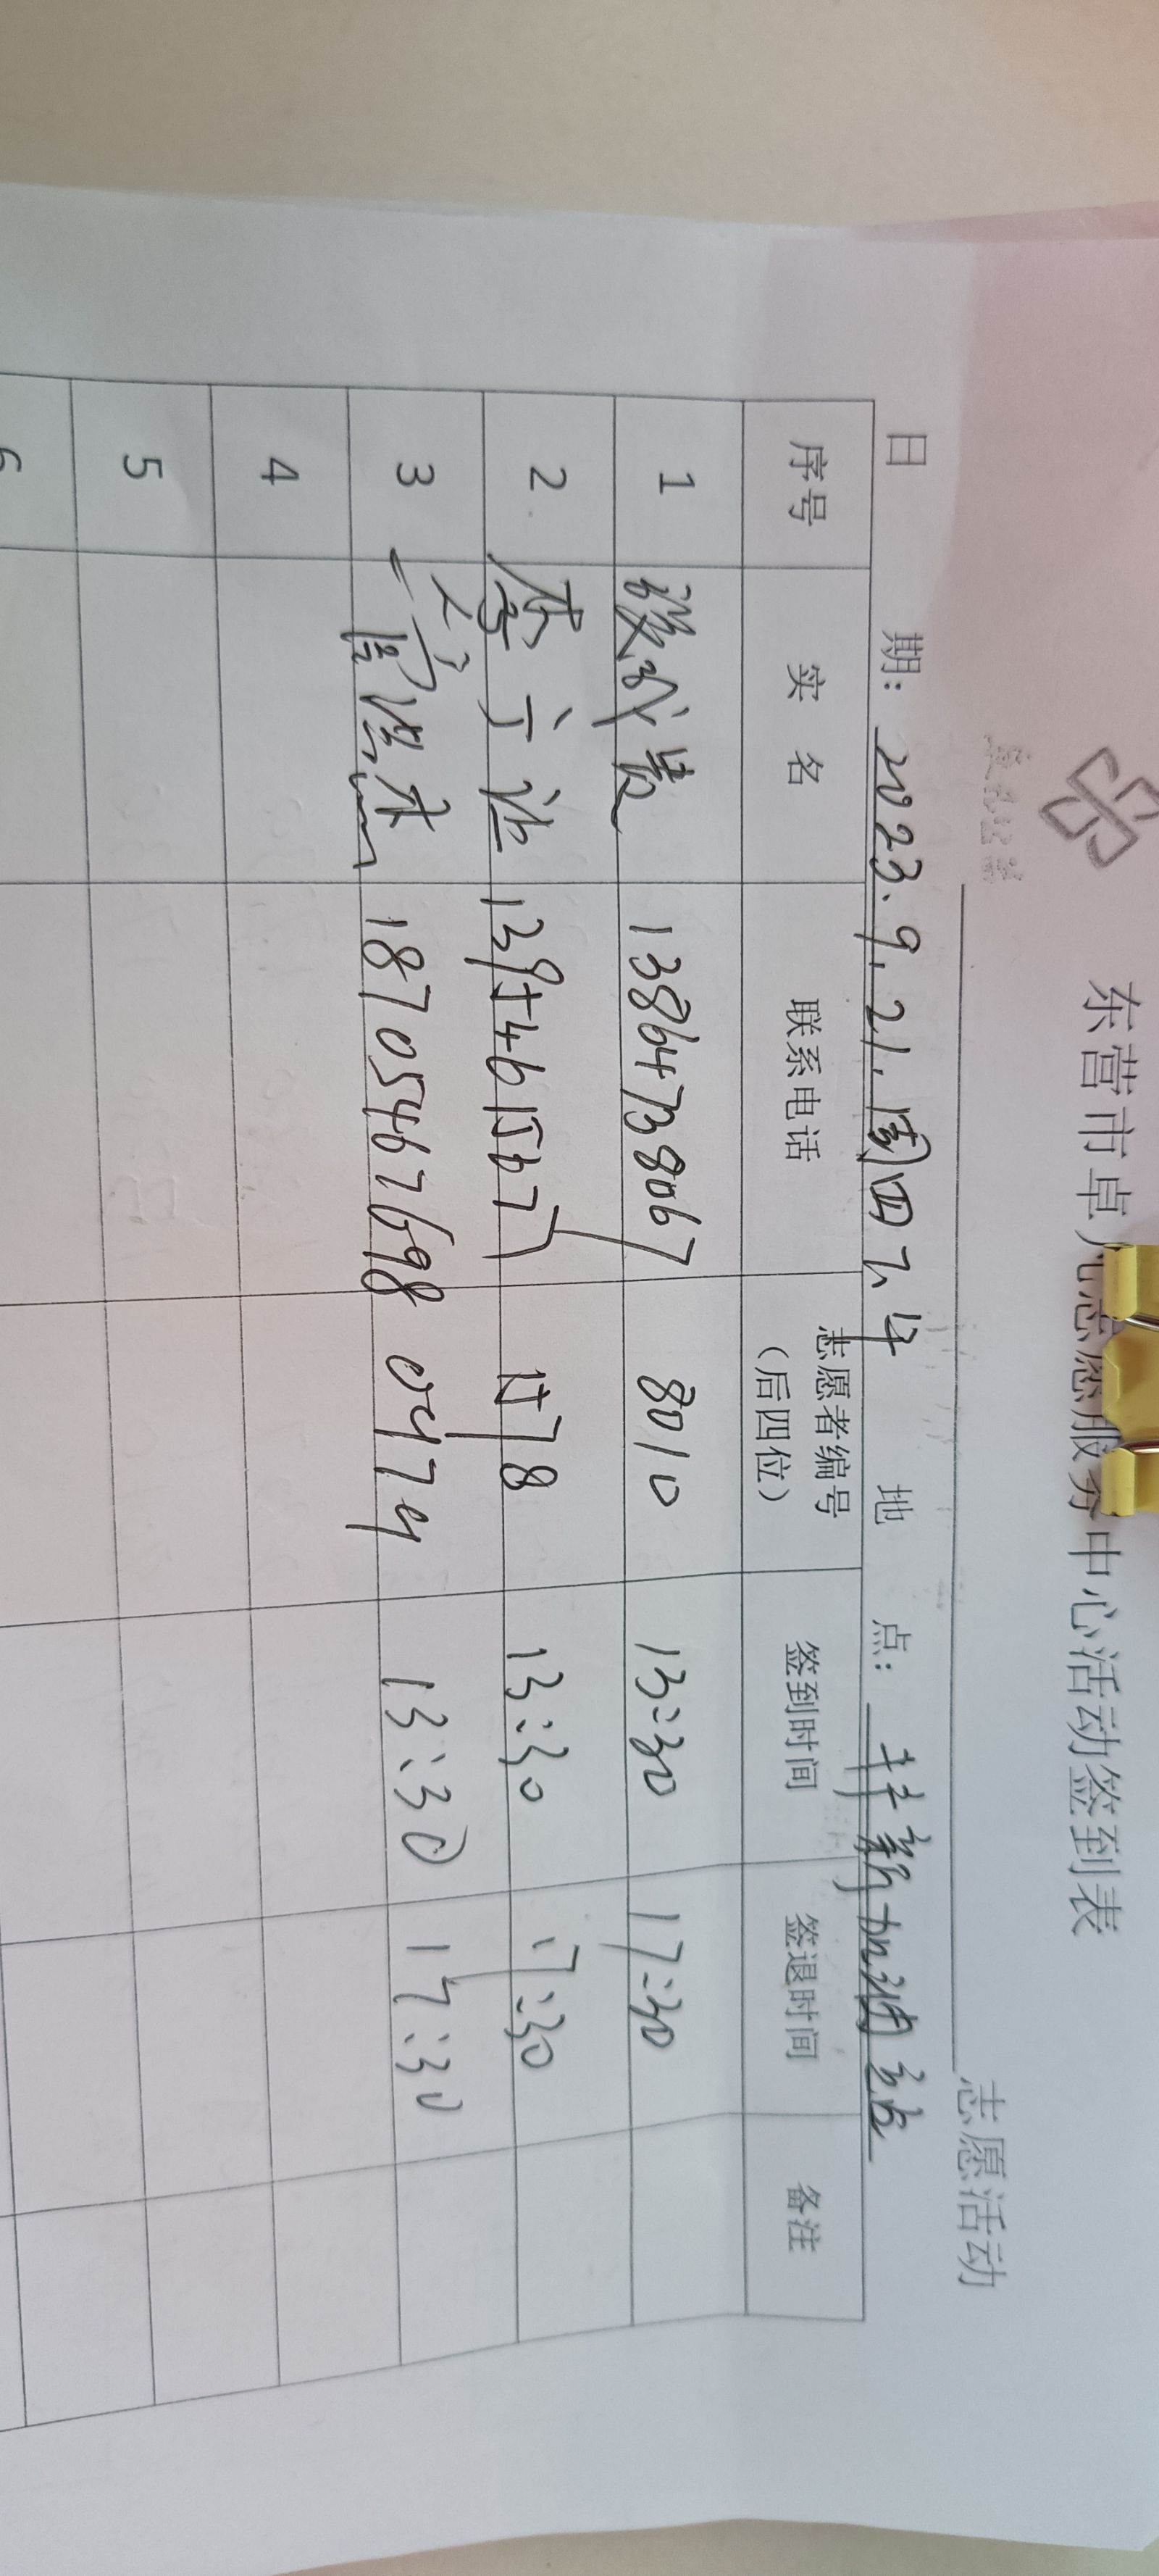 东营市卓 志愿服务中心活动签到表
志愿活动
日 期: 2023.9.21.周四下午 地 点: 加油站
序号 实 名 联系电话 志愿者编号（后四位） 签到时间 签退时间 备注
1 13864738067 8010 13:30 17:30
2 13954615677 1578 13:30 17:30
3 18705467698 0979 13:30 17:30
4
5
6